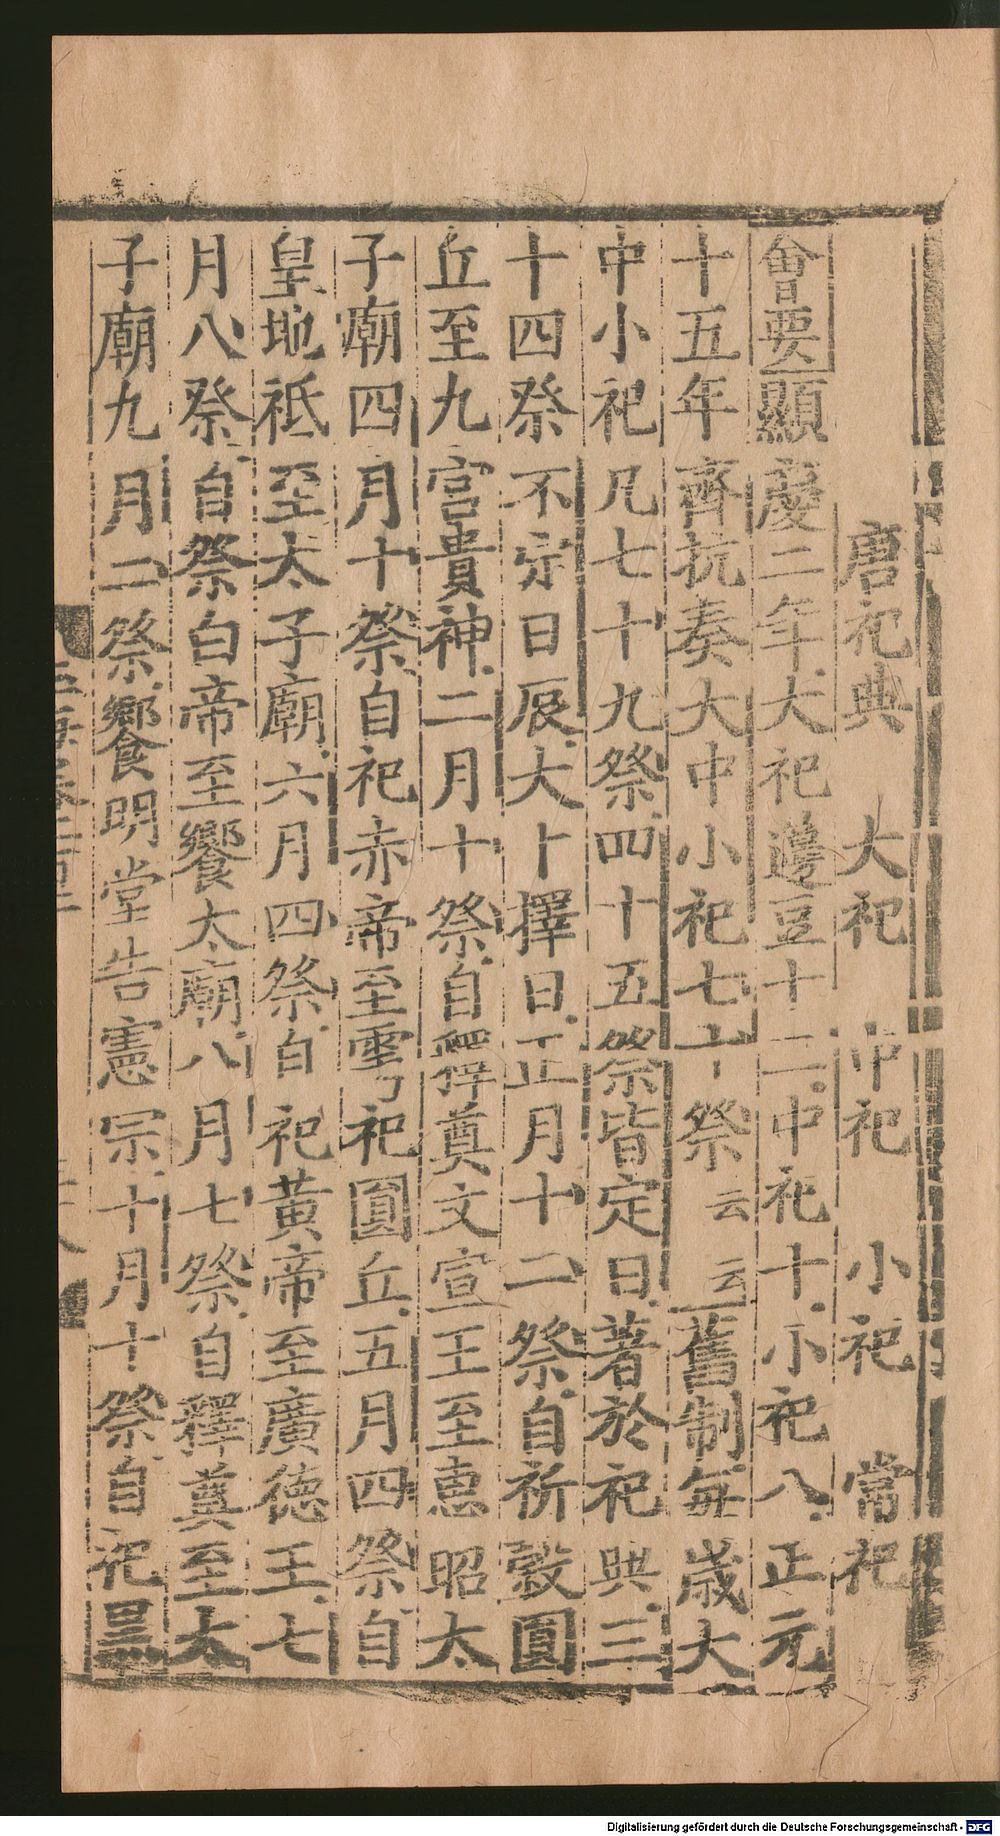 唐祀典　大祀　中祀　小祀　當祀
會要顯慶二年大祀籩豆十二中祀十小祀八正元
十五年齊抗奏大中小祀七十祭云云舊制每歲大
中小祀凡七十九祭四十五祭皆定日著於祀典三
十四祭不定日辰大卜擇日正月十二祭自祈穀圓
丘至九宮貴神二月十祭自釋奠文宣王至惠昭太
子廟四月十祭自祀赤帝至雩祀圓丘五月四祭自
皇地祗至太子廟六月四祭自祀黃帝至廣德王七
月八祭自祭白帝至饗太廟八月七祭自釋奠至太
子廟九月二祭饗明堂告憲宗十月十祭自祀黑
Digitalisierung gefördert durch die Deutsche Forschungsgemeinschaft - DFG